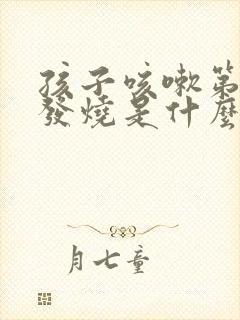 孩子咳嗽第
發燒是什麼
月七童